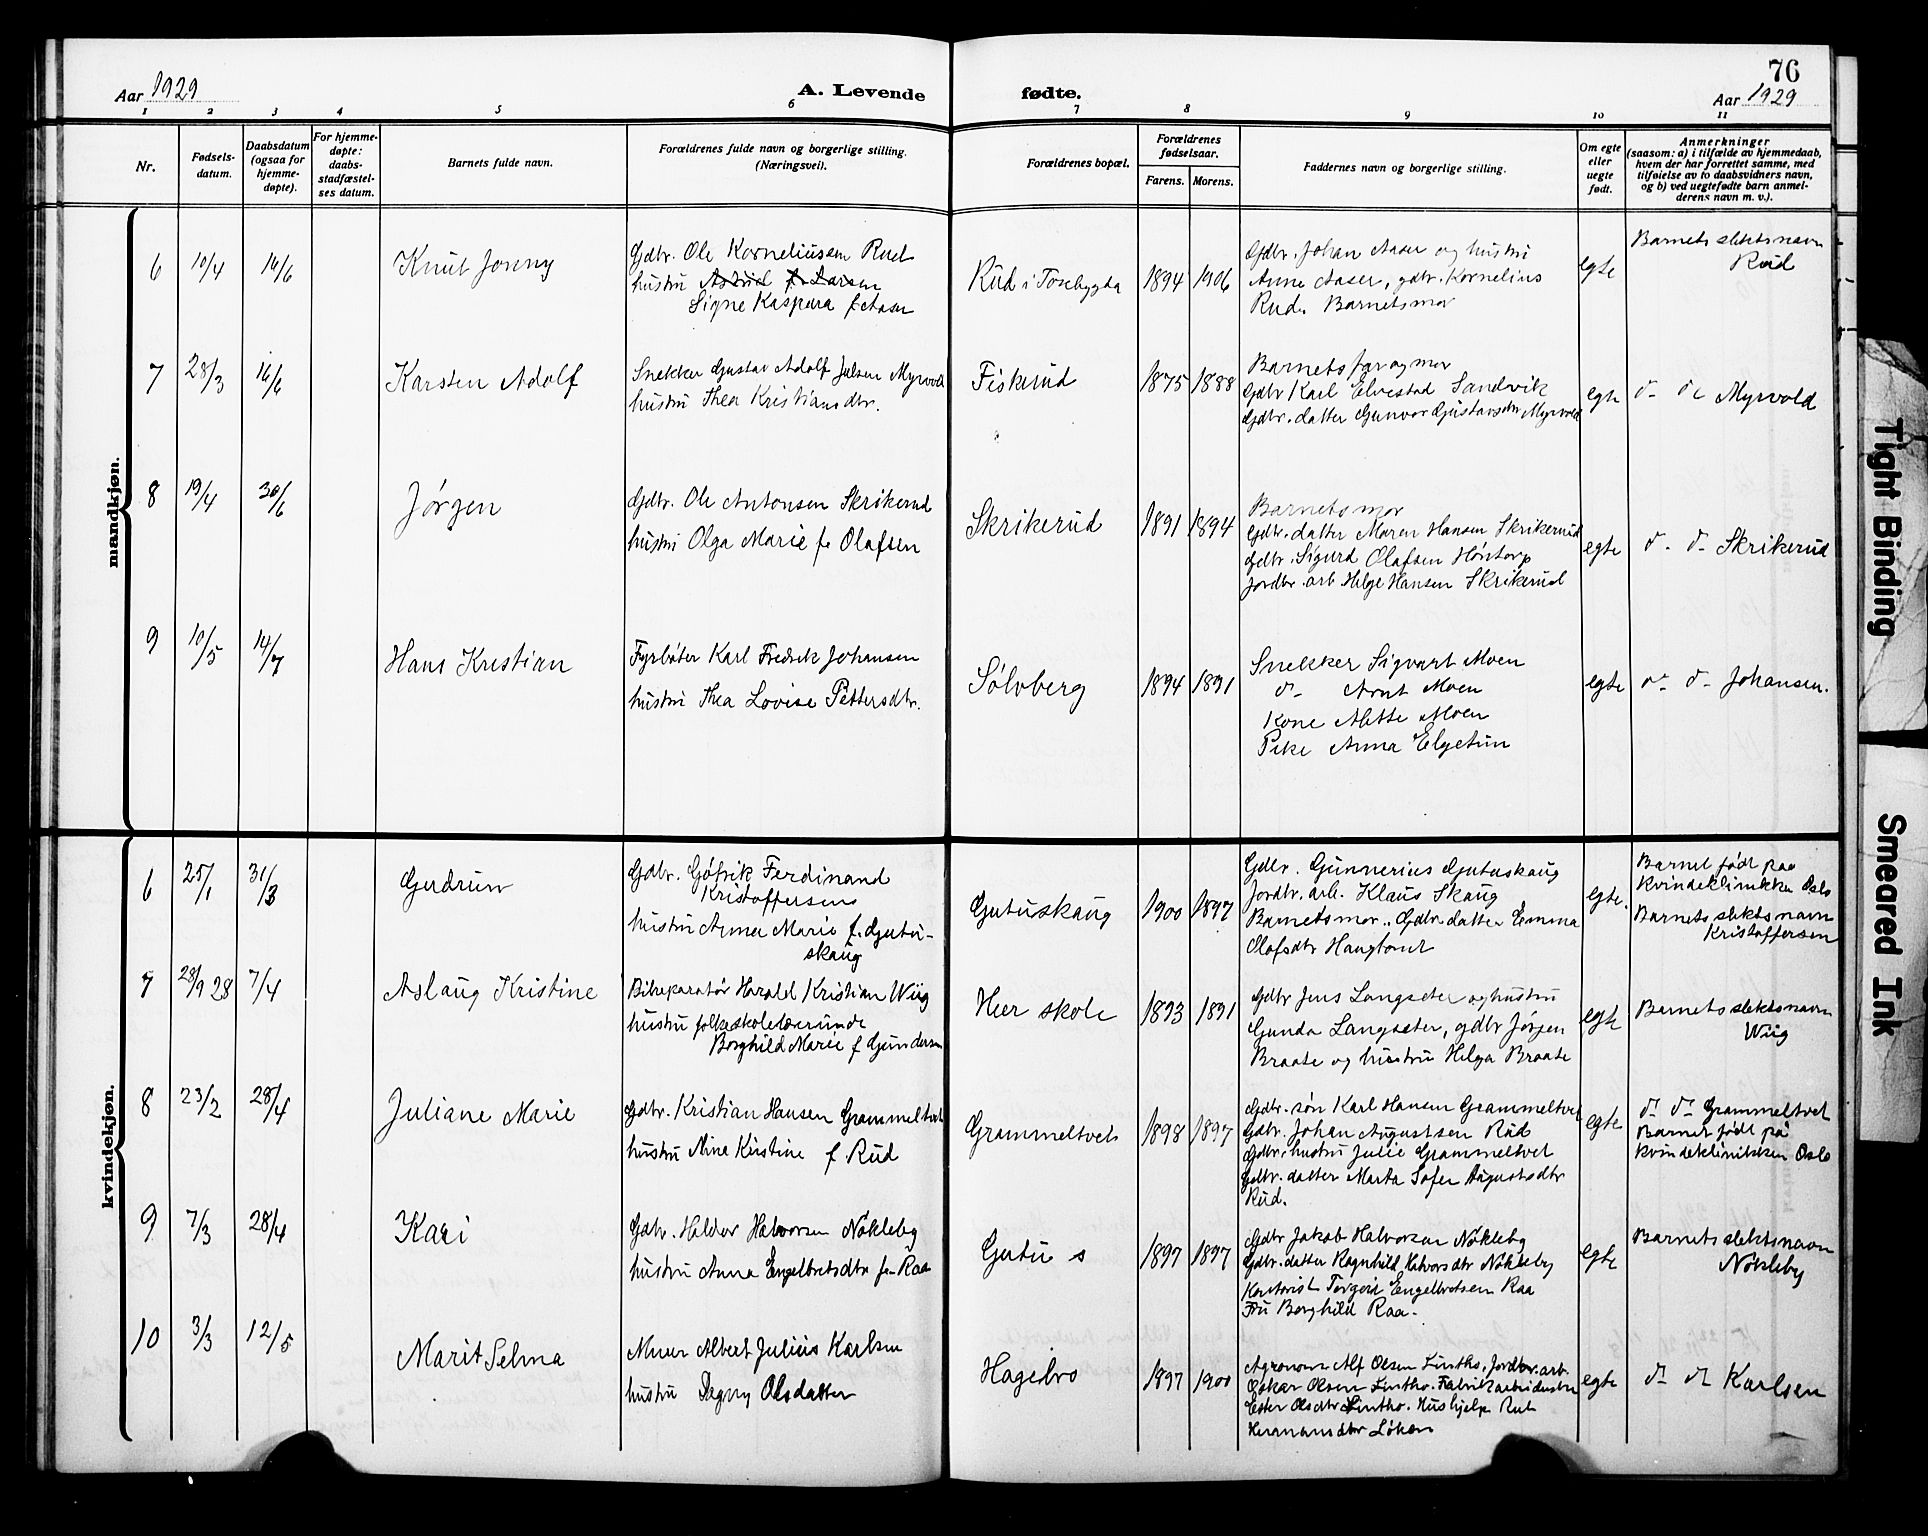 76
Aar 1929
A. Levende
fødte.
Aar 1929
1 2 3 4 5 6 7 8 9 10 11
Nr.
Fødsels-
datum.
Daabsdatum
(ogsaa for
hjemme-
døpte).
For hjemme-
døpte:
daabs-
stadfæstel-
ses datum.
Barnets fulde navn.
Forældrenes fulde navn og borgerlige stilling.
(Næringsvei).
Forældrenes bopæl.
Forældrenes
fødselsaar.
Farens. Morens.
Faddernes navn og borgerlige stilling.
Om egte
eller
uegte
født.
Anmerkninger
(saasom: a) i tilfælde av hjemmedaab,
hvem der har forrettet samme, med
tilføielse av to daabsvidners navn,
og b) ved uegtefødte barn anmel-
derens navn m. v.).
mandkjøn.
6 10/4 16/6
Knut Jonny
Gdbr. Ole Korneliussen Rud
hustru Astrid f. Larsen
Signe Kaspara f. Aaser
Rud i Tosebygda
1894 1906
Gdbr. Johan Aaser og hustru
Anne Aaser, gdbr. Kornelius
Rud. Barnets mor
egte
Barnets slektsnavn
Rud
7 28/3 16/6
Karsten Adolf
Snekker Gustav Adolf Julsen Myrvold
hustru Thea Kristiansdtr.
Fiskerud
1875 1888
Barnets far og mor
Gdbr Karl Elvestad Sandvik
Gdbr. datter Gunvor Gustavsdtr Myrvold
egte
d- d- Myrvold
8 19/4 30/6
Jørgen
Gdbr. Ole Antonsen Skrikerud
hustru Olga Marie f. Olafsen
Skrikerud
1891 1894
Barnets mor
Gdbr. datter Maren Hansen Skrikerud
Gdbr. Sigurd Olafsen Høntorp
Jordbr. arb Helge Hansen Skrikerud
egte
d- d- Skrikerud
9 10/5 14/7
Hans Kristian
Fyrbøter Karl Fredrik Johansen
hustru Thea Lovise Pettersdtr.
Sølvberg
1894 1891
Snekker Sigvart Moen
d- Arnt Moen
Kone Mette Moen
Pike Anna Elgetun
egte
d- d- Johansen.
kvindekjøn.
6 25/1 31/3
Gudrun
Gdbr. Gøfrik Ferdinand
Kristoffersen
hustru Anna Marie f. Gutu-
skaug
Gutuskaug
1900 1897
Gdbr. Gunnerius Gutuskaug
Jordbr. arb. Klaus Skaug
Barnets mor. Gdbr datter Emma
Olafsdtr Haugtomt
egte.
Barnet født paa
Kvindeklinikken Oslo
Barnets slektsnavn
Kristoffersen
7 28/9 28 7/4
Aslaug Kristine
Bilreparatør Harald Kristian Wiig
hustru folkeskolelærerinde
Borghild Marie f Gundersen
Heer skole
1893 1891
Gdbr Jens Langseter og hustru
Gunda Langseter, gdbr Jørgen
Braate og hustru Helga Braate
egte
Barnets slektsnavn
Wiig
8 23/2 28/4
Juliane Marie
Gdbr. Kristian Hansen Grammeltvet
hustru Nina Kristine f Rud
Grammeltvet
1898 1897
Gdbr. søn Karl Hansen Grammeltvet
Gdbr. Johan Augustsen Rud
Gdbr. hustru Julie Grammeltvet
Gdbr. datter Marta Sofie Augustsdtr
Rud.
egte
d- d- Grammeltvet
Barnet født på
Kvindeklinikken Oslo
9 7/3 28/4
Kari
Gdbr. Haldor Halvorsen Nökleby
hustru Anna Engelbretsdtr f- Raa
Gutu s
1897 1897
Gdbr Jakob Halvorsen Nökleby
Gdbr. datter Ragnhild Halvorsdtr Nökleby
Kontorist Torgeir Engelbretsen Raa
Fru Borghild Raa.
egte
Barnets slektsnavn
Nökleby
10 3/3 12/5
Marit Selma
Murer Albert Julius Karlsen
hustru Dagny Olsdatter
Hagebro
1897 1900
Agronom Alf Olsen Lintho, Jordbr. arb.
Oskar Olsen Lintho. Fabrikarbeiderske
Ester Olsdtr Lintho. Hushjelp Rut
Hermansdtr Løken
egte
d- d- Karlsen
Tight Binding
Smeared Ink